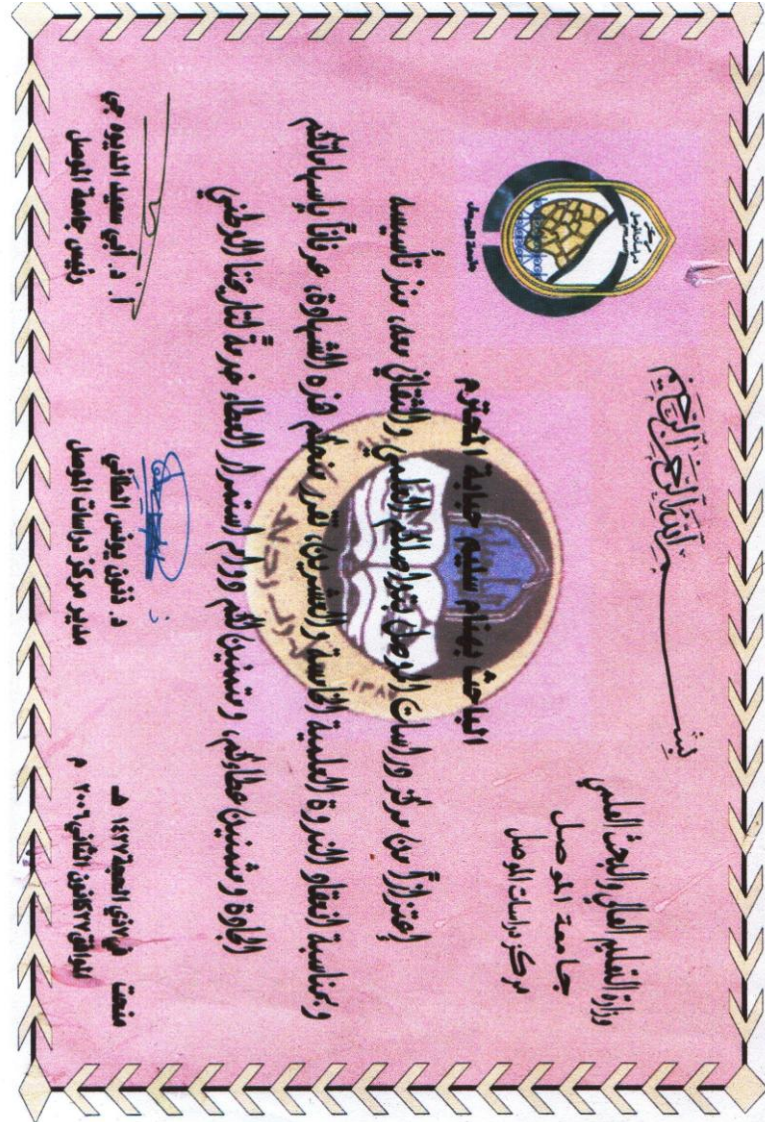 بسم الله الرحمن الرحيم
وزارة التعليم العالي والبحث العلمي
جامعة الموصل
مركز دراسات الموصل
جامعة الموصل
الباحث بهنام سليم حبابة المحترم
إعتزازاً من مركز دراسات الموصل بتواصلكم العلمي والثقافي معه، منذ تأسيسه
وبمناسبة انعقاد الندوة العلمية الخامسة والعشرين، تقرر منحكم هذه الشهادة، عرفاناً بإسهاماتكم
الجادة ومثمنين عطاءكم، ومتمنين لكم دوام استمرار العطاء خدمةً لتاريخنا الوطني
منحت في ٧ ذي الحجة ١٤٢٧ هـ
الموافق ٢٧ كانون الثاني ٢٠٠٦ م
د. ذنون يونس الطائي
مدير مركز دراسات الموصل
أ. د. أبي سعيد الديوه جي
رئيس جامعة الموصل